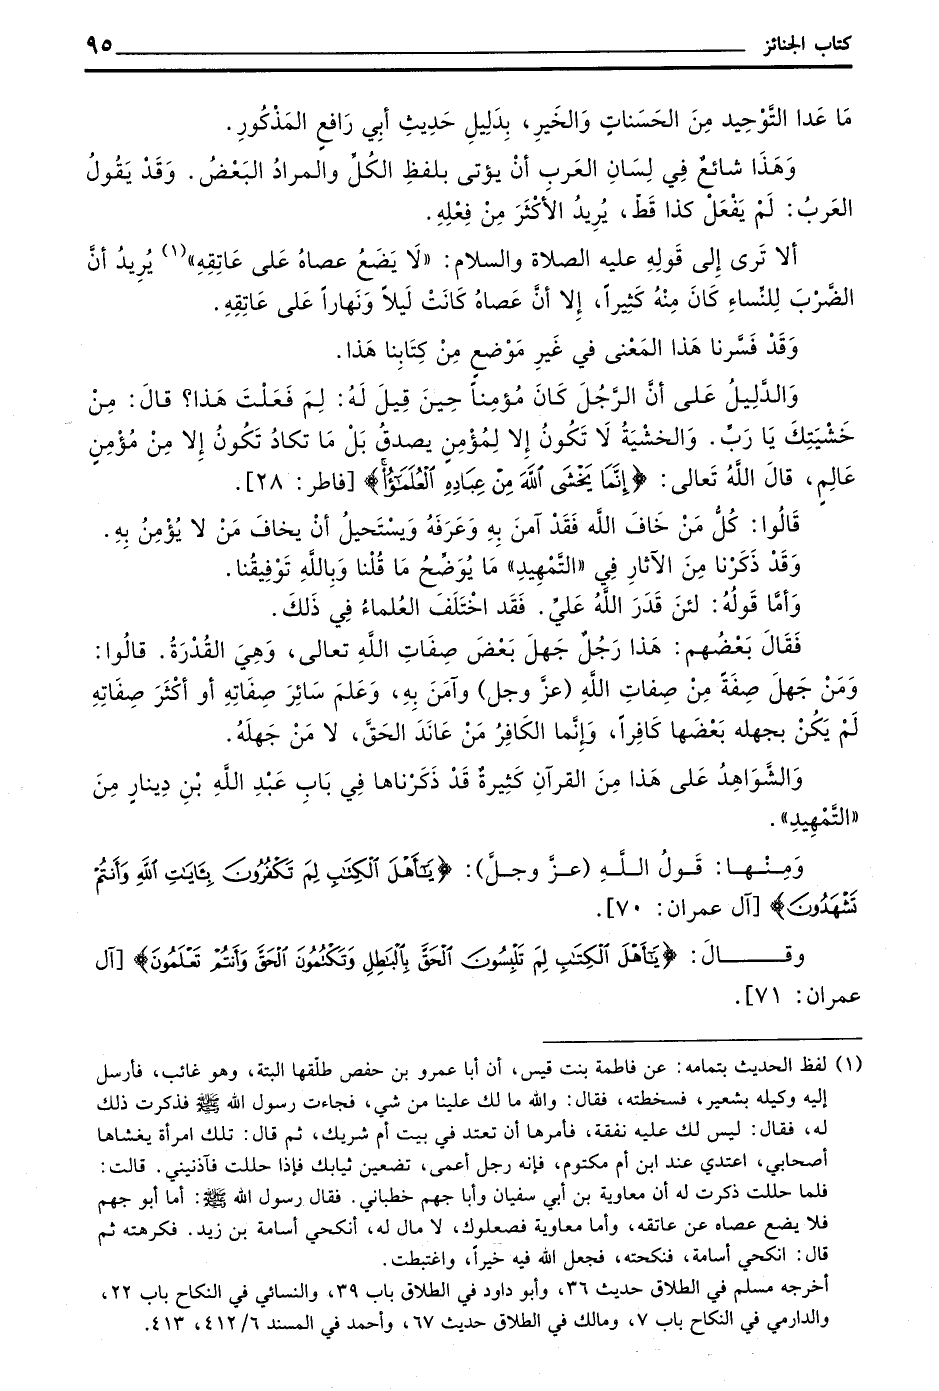 كتاب الجنائز ٩٥
مَا عَدا التَّوْحِيد مِنَ الحَسَناتِ وَالخَيرِ، بِدَلِيلِ حَدِيثِ أبي رَافعِ المَذْكُورِ.
وَهَذَا شائعٌ فِي لِسَانِ العَربِ أنْ يؤتى بلفظِ الكُلِّ والمرادُ البَعْضُ. وَقَدْ يَقُولُ
العَربُ: لَمْ يَفْعَلْ كذا قَطّ، يُرِيدُ الأكْثَرَ مِنْ فِعْلِهِ.
ألا تَرى إلى قَولِهِ عليه الصلاة والسلام: «لَا يَضَعُ عصاهُ عَلى عَاتِقِهِ»(١) يُرِيدُ أنَّ
الضَّرْبَ لِلنِّساءِ كَانَ مِنْهُ كَثِيراً، إلا أنَّ عَصاهُ كَانَتْ لَيلاً وَنَهاراً عَلى عَاتِقِهِ.
وَقَدْ فَسَّرنا هَذا المَعْنى في غَيرِ مَوْضعٍ مِنْ كِتَابِنا هَذا.
وَالدَّلِيلُ عَلى أنَّ الرَّجُلَ كَانَ مُؤمِناً حِينَ قِيلَ لَهُ: لِمَ فَعَلْتَ هَذا؟ قالَ: مِنْ
خَشْيَتِكَ يَا رَبِّ. وَالخشْيَةُ لَا تَكُونُ إلا لِمُؤْمنٍ يصدقُ بَلْ مَا تكادُ تَكُونُ إلا مِنْ مُؤْمِنٍ
عَالِمٍ، قالَ اللَّهُ تَعالى: ﴿إِنَّمَا يَخْشَى ٱللَّهَ مِنْ عِبَادِهِ ٱلْعُلَمَـٰٓؤُا۟ۗ﴾ [فاطر: ٢٨].
قَالُوا: كُلُّ مَنْ خَافَ اللَّه فَقَدْ آمنَ بِهِ وَعَرَفَهُ وَيسْتَحيلُ أنْ يخافَ مَنْ لا يُؤْمِنُ بِهِ.
وَقَدْ ذَكَرْنا مِنَ الآثارِ فِي «التَّمْهِيدِ» مَا يُوَضِّحُ مَا قُلْنا وَبِاللَّهِ تَوْفِيقُنا.
وَأمَّا قَولُهُ: لئنْ قَدَرَ اللَّهُ عَليّ. فَقَد اخْتَلَفَ العُلماءُ فِي ذَلكَ.
فَقَالَ بَعْضُهم: هَذا رَجُلٌ جَهلَ بَعْضَ صِفَاتِ اللَّهِ تعالى، وَهِيَ القُدْرَةُ. قالُوا:
وَمَنْ جَهلَ صِفَةً مِنْ صِفاتِ اللَّهِ (عزَّ وجل) وآمَنَ بِهِ، وَعَلمَ سَائرَ صِفَاتِهِ أو أكْثَرَ صِفَاتِهِ
لَمْ يَكُنْ بجهله بَعْضَها كَافراً، وَإنَّما الكَافِرُ مَنْ عَاندَ الحَقَّ، لا مَنْ جَهِلَهُ.
وَالشَّواهِدُ عَلى هَذا مِنَ القرآنِ كَثِيرةٌ قَدْ ذَكَرْناها فِي بَابِ عَبْدِ اللَّهِ بْنِ دِينارٍ مِنَ
«التَّمْهِيدِ».
وَمِنْها: قَولُ اللَّهِ (عزَّ وجلَّ): ﴿يَـٰٓأَهْلَ ٱلْكِتَـٰبِ لِمَ تَكْفُرُونَ بِـَٔايَـٰتِ ٱللَّهِ وَأَنتُمْ
تَشْهَدُونَ﴾ [آل عمران: ٧٠].
وقالَ: ﴿يَـٰٓأَهْلَ ٱلْكِتَـٰبِ لِمَ تَلْبِسُونَ ٱلْحَقَّ بِٱلْبَـٰطِلِ وَتَكْتُمُونَ ٱلْحَقَّ وَأَنتُمْ تَعْلَمُونَ﴾ [آل
عمران: ٧١].
(١) لفظ الحديث بتمامه: عن فاطمة بنت قيس، أن أبا عمرو بن حفص طلّقها البتة، وهو غائب، فأرسل
إليه وكيله بشعير، فسخطته، فقال: والله ما لك علينا من شي، فجاءت رسول الله ﷺ فذكرت ذلك
له، فقال: ليس لك عليه نفقة، فأمرها أن تعتد في بيت أم شريك، ثم قال: تلك امرأة يغشاها
أصحابي، اعتدي عند ابن أم مكتوم، فإنه رجل أعمى، تضعين ثيابك فإذا حللت فآذنيني. قالت:
فلما حللت ذكرت له أن معاوية بن أبي سفيان وأبا جهم خطباني. فقال رسول الله ﷺ: أما أبو جهم
فلا يضع عصاه عن عاتقه، وأما معاوية فصعلوك، لا مال له، أنكحي أسامة بن زيد. فكرهته ثم
قال: انكحي أسامة، فنكحته، فجعل الله فيه خيراً، واغتبطت.
أخرجه مسلم في الطلاق حديث ٣٦، وأبو داود في الطلاق باب ٣٩، والنسائي في النكاح باب ٢٢،
والدارمي في النكاح باب ٧، ومالك في الطلاق حديث ٦٧، وأحمد في المسند ٤١٢/٦، ٤١٣.